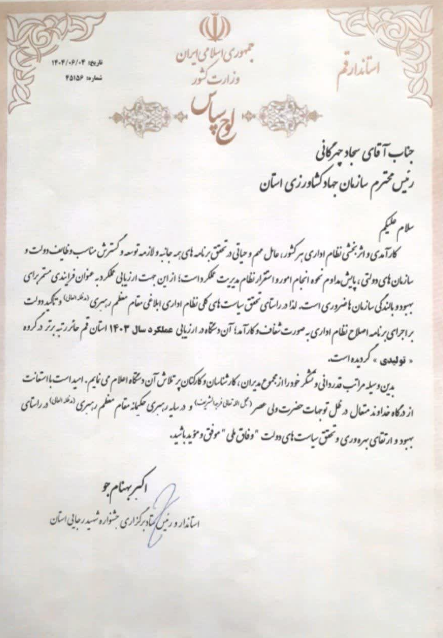 جمهوری اسلامی ایران
وزارت کشور
استاندار قم
تاریخ: ۱۴۰۴/۰۶/۰۴
شماره: ۴۵۱۵۶
لوح سپاس
جناب آقای سجاد چهرگانی
رئیس محترم سازمان جهاد کشاورزی استان
سلام علیکم
کارآمدی و اثربخشی نظام اداری هر کشور، عامل مهم و حیاتی در تحقق برنامه های همه جانبه و لازمه توسعه و گسترش مناسب وظایف دولت و
سازمان های دولتی، پایش مداوم نحوه انجام امور و استقرار نظام مدیریت عملکرد است؛ از این جهت ارزیابی عملکرد به عنوان فرایندی مستمر برای
بهبود و بالندگی سازمان ها ضروری است. لذا در راستای تحقق سیاست های کلی نظام اداری ابلاغی مقام معظم رهبری (مدظله العالی) و تاکید دولت
بر اجرای برنامه اصلاح نظام اداری به صورت شفاف و کارآمد؛ آن دستگاه در ارزیابی عملکرد سال ۱۴۰۳ استان قم حائز رتبه برتر در گروه
« تولیدی » گردیده است.
بدین وسیله مراتب قدردانی و تشکر خود را از مجموع مدیران، کارشناسان و کارکنان پرتلاش آن دستگاه اعلام می نمایم. امید است با استعانت
از درگاه خداوند متعال در ظل توجهات حضرت ولی عصر (عجل الله تعالی فرجه الشریف) و در سایه رهبری حکیمانه مقام معظم رهبری (مدظله العالی) در راستای
بهبود و ارتقای بهره وری و تحقق سیاست های دولت "وفاق ملی" موفق و مؤید باشید.
اکبر بهنام جو
استاندار و رئیس ستاد برگزاری جشنواره شهید رجایی استان